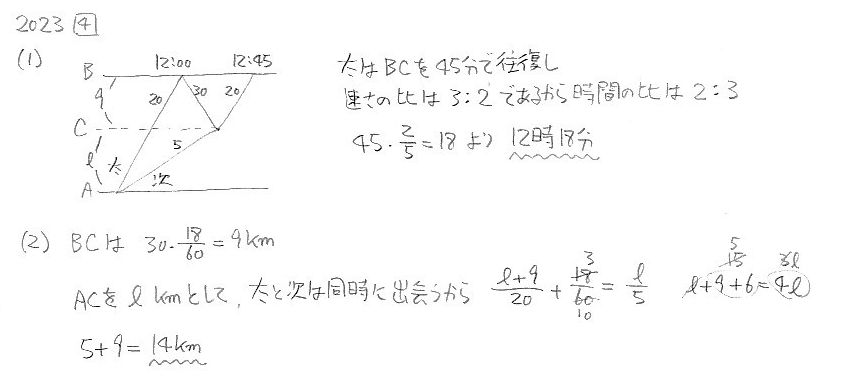 2023 4
(1)
B 12:00 12:45
20 30 20
9
C
5
l
太
次
A
太はBCを45分で往復し
速さの比は3:2であるから時間の比は2:3
45・2/5=18より 12時18分
(2) BCは 30・18/60=9km
ACを l kmとして、太と次は同時に出会うから (l+9)/20 + 18/60 = l/5 l+9+6=4l
3 10 5 15 3l
5+9=14km